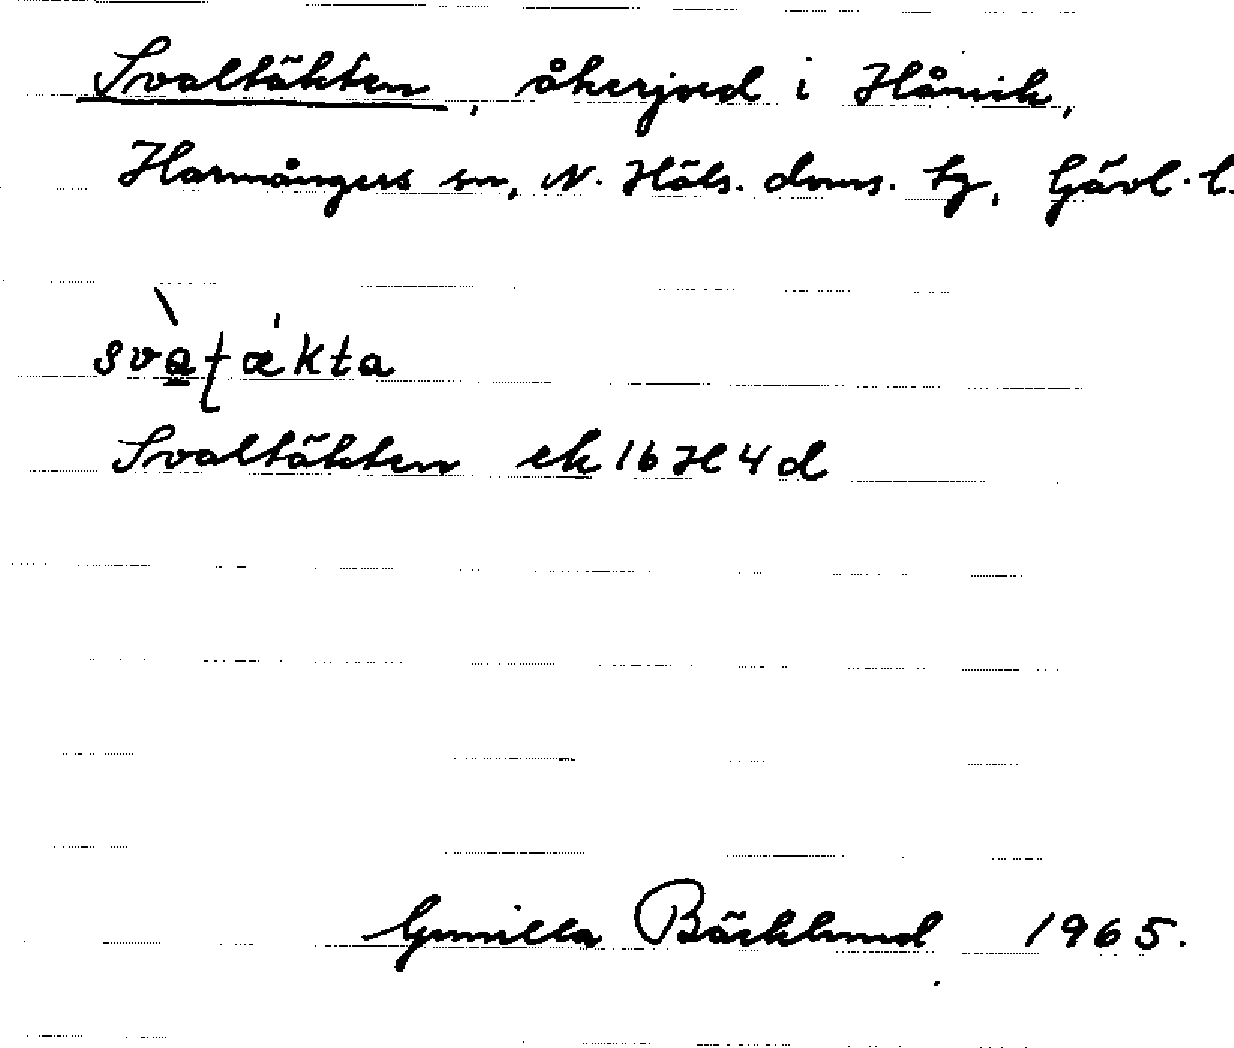 Svaltäkten, åkerjord i Hånick,
Harmångers sn, N. Häls. doms. tg, Gävl. l.
svàƭǽkta
Svaltäkten ek 16 H 4 d
Gunilla Bäcklund 1965.